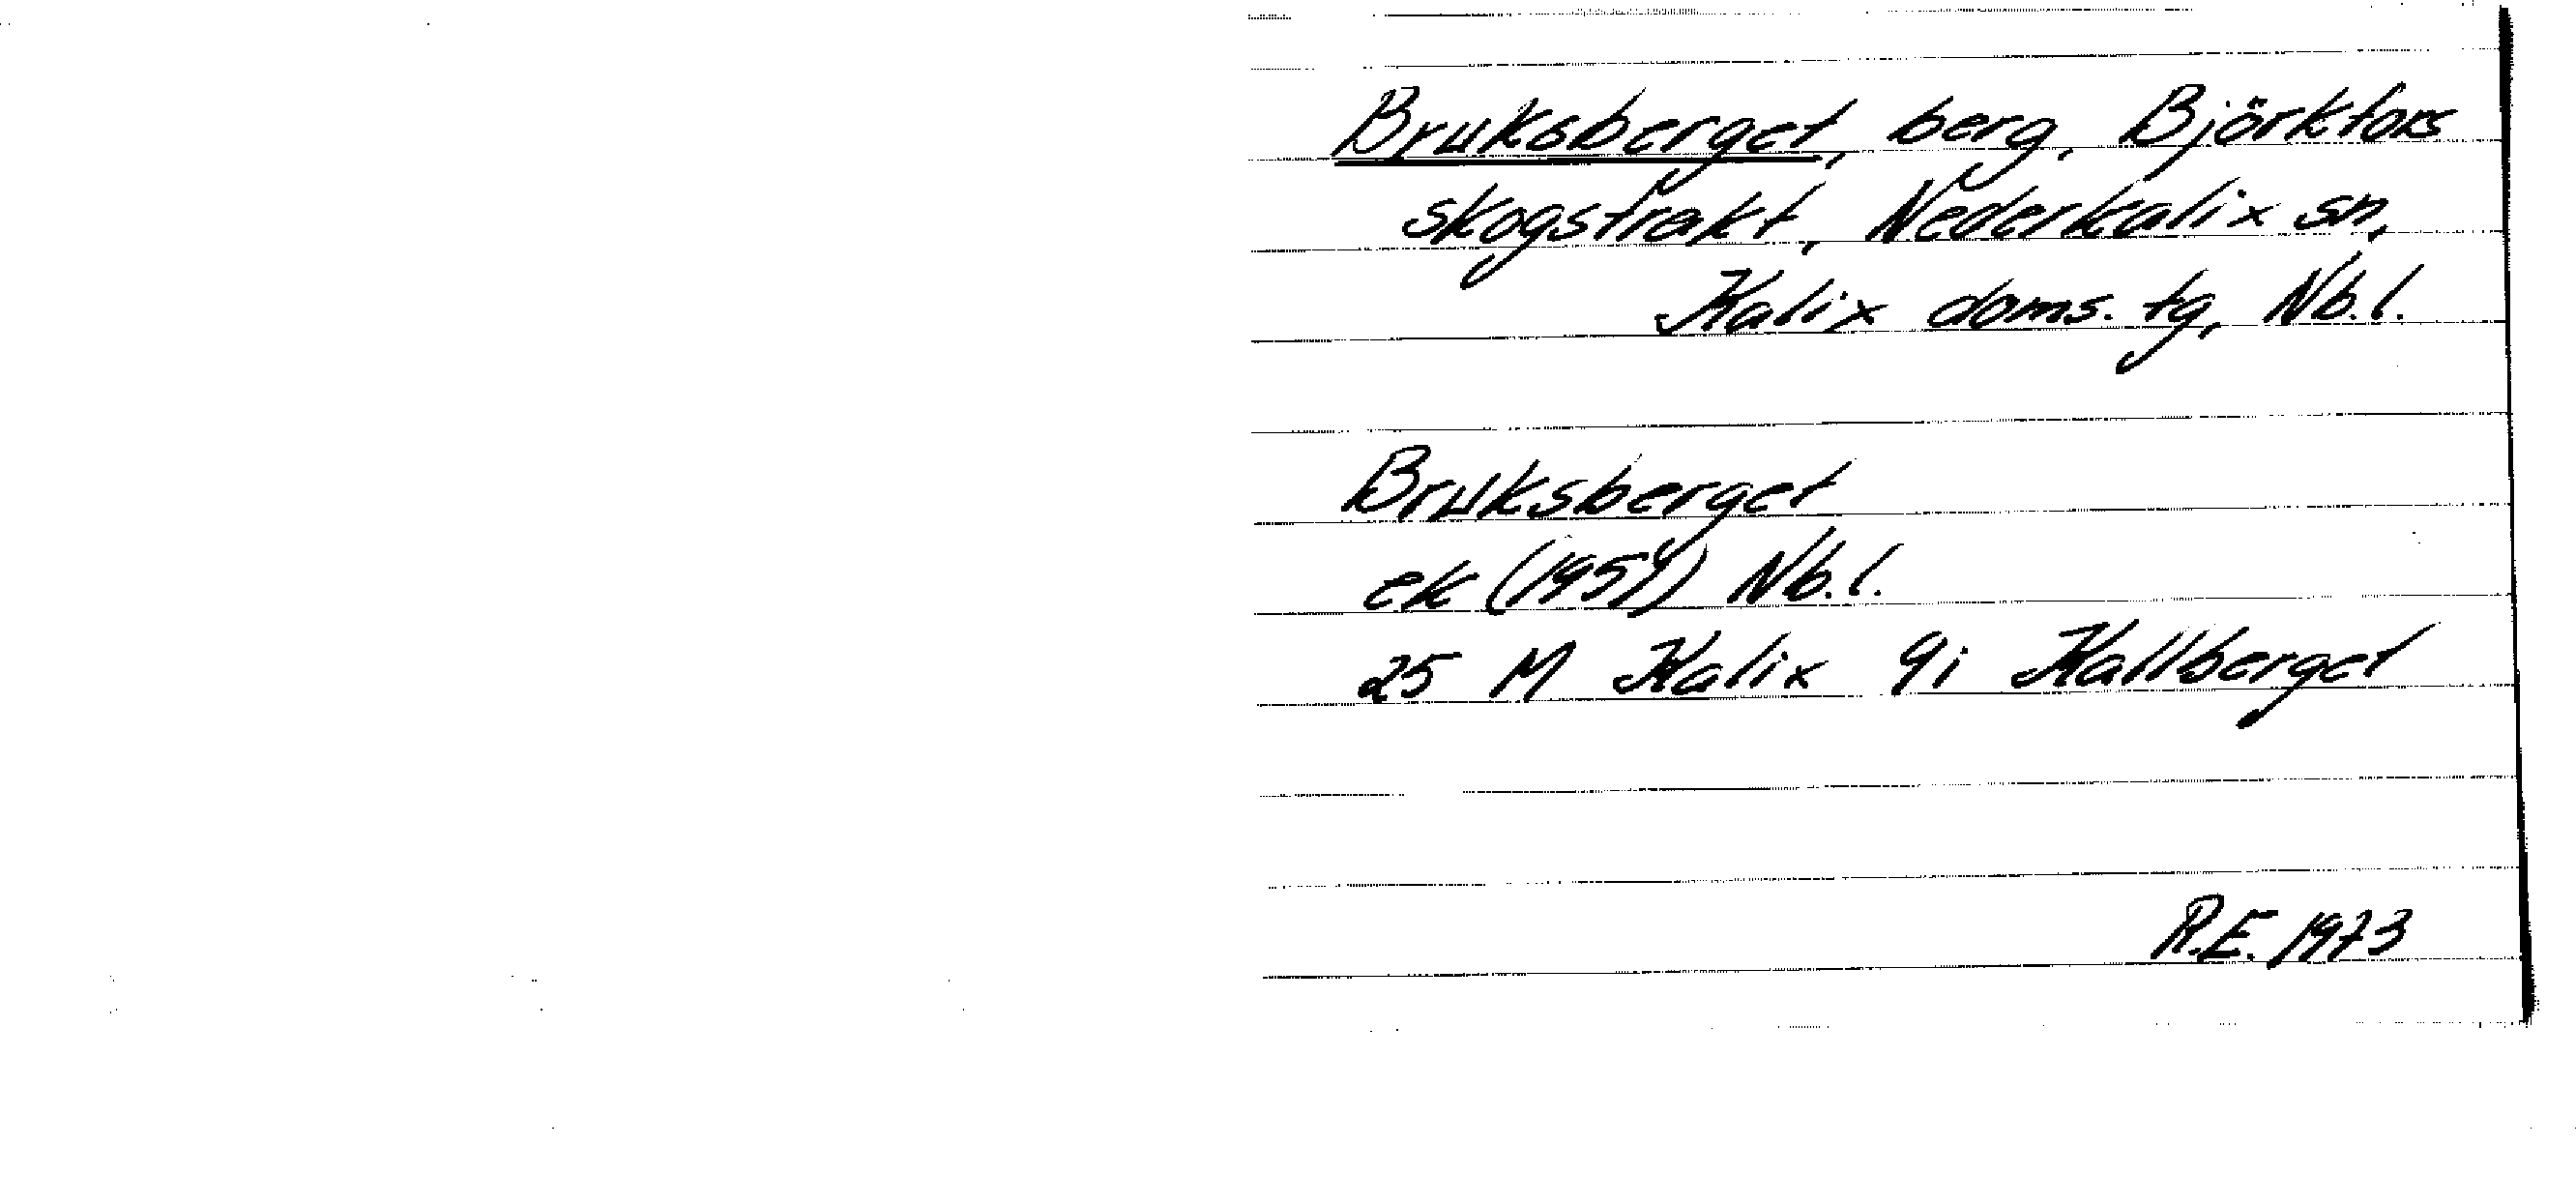 Bruksberget, berg, Björkfors
skogstrakt, Nederkalix sn,
Kalix doms. tg, Nb.l.
Bruksberget
ek Nb.l.
25 M Kalix 9i Kallberget
R.E. 1973